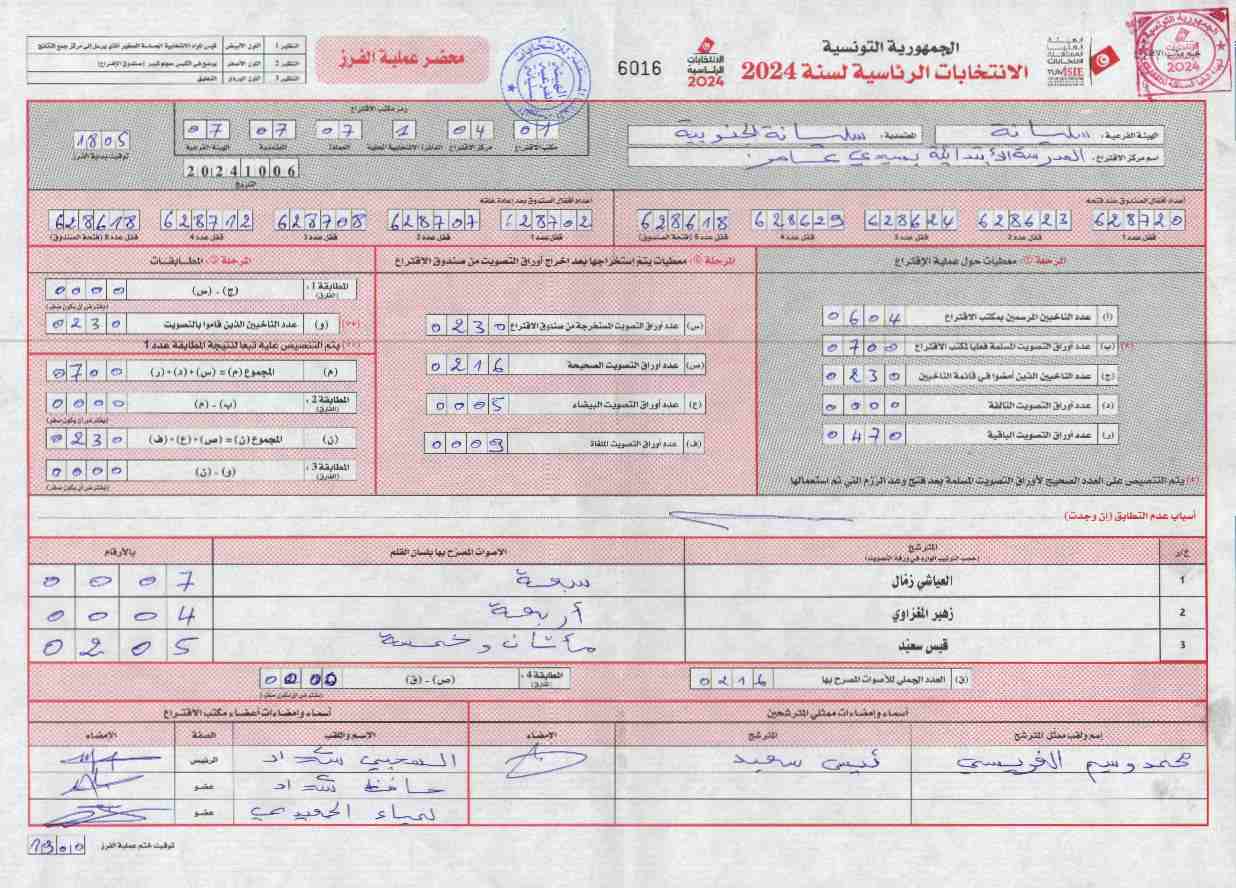 الجمهورية التونسية
الانتخابات الرئاسية لسنة 2024
الانتخابات الرئاسية 2024
6016
محضر عملية الفرز
النظير 1 اللون الأبيض
النظير 2 اللون الأصفر
النظير 3 اللون الوردي التعليق
الهيئة الفرعية : سليانة
المعتمدية : سليانة الجنوبية
اسم مركز الاقتراع : المدرسة الابتدائية بسيدي عامر
رمز مكتب الاقتراع
01 04 1 07 07 07
مكتب الاقتراع مركز الاقتراع الدائرة الانتخابية المحلية العمادة المعتمدية الهيئة الفرعية
20241006
التاريخ
1805
توقيت بداية الفرز
أعداد أقفال الصندوق عند فتحه
628720 628623 628624 628629 628618
قفل عدد 1 قفل عدد 2 قفل عدد 3 قفل عدد 4 قفل عدد 5 (فتحة الصندوق)
أعداد أقفال الصندوق بعد إعادة غلقه
628702 628707 628708 628712 628618
قفل عدد 1 قفل عدد 2 قفل عدد 3 قفل عدد 4 قفل عدد 5 (فتحة الصندوق)
المرحلة ①: معطيات حول عملية الإقتراع
(أ) عدد الناخبين المرسمين بمكتب الاقتراع 0604
(*) (ب) عدد أوراق التصويت المسلمة فعليا لمكتب الاقتراع 0700
(ج) عدد الناخبين الذين أمضوا في قائمة الناخبين 0230
(د) عدد أوراق التصويت التالفة 0000
(ر) عدد أوراق التصويت الباقية 0470
(*) يتم التنصيص على العدد الصحيح لأوراق التصويت المسلمة بعد فتح وعد الرزم التي تم استعمالها
المرحلة ②: معطيات يتم إستخراجها بعد اخراج أوراق التصويت من صندوق الاقتراع
(س) عدد أوراق التصويت المستخرجة من صندوق الاقتراع 0230
(ص) عدد أوراق التصويت الصحيحة 0216
(ع) عدد أوراق التصويت البيضاء 0005
(ف) عدد أوراق التصويت الملغاة 0009
المرحلة ③: المطابقات
المطابقة 1 : (الفارق) (ج) - (س) 0000
(يفترض أن يكون صفر)
(**) (و) عدد الناخبين الذين قاموا بالتصويت 0230
(**) يتم التنصيص عليه تبعا لنتيجة المطابقة عدد 1
(م) المجموع (م) = (س) + (د) + (ر) 0700
المطابقة 2 : (الفارق) (ب) - (م) 0000
(يفترض أن يكون صفر)
(ن) المجموع (ن) = (ص) + (ع) + (ف) 0230
المطابقة 3 : (الفارق) (و) - (ن) 0000
(يفترض أن يكون صفر)
أسباب عدم التطابق (إن وجدت)
ع/ر المترشح الأصوات المصرح بها بلسان القلم بالأرقام
(حسب الترتيب الوارد في ورقة التصويت)
1 العياشي زمّال سبعة 0007
2 زهير المغزاوي أربعة 0004
3 قيس سعيّد مائتان وخمسة 0205
(ق) العدد الجملي للأصوات المصرح بها 0216
المطابقة 4 : (الفارق) (ص) - (ق) 0000
(يفترض أن يكون صفر)
أسماء وإمضاءات ممثلي المترشحين
إسم ولقب ممثل المترشح المترشح الامضاء
محمد وسيم الفريسي قيس سعيد
أسماء وإمضاءات أعضاء مكتب الاقتراع
الاسم واللقب الصفة الامضاء
الرئيس
عضو
لمياء عضو
توقيت ختم عملية الفرز 1900